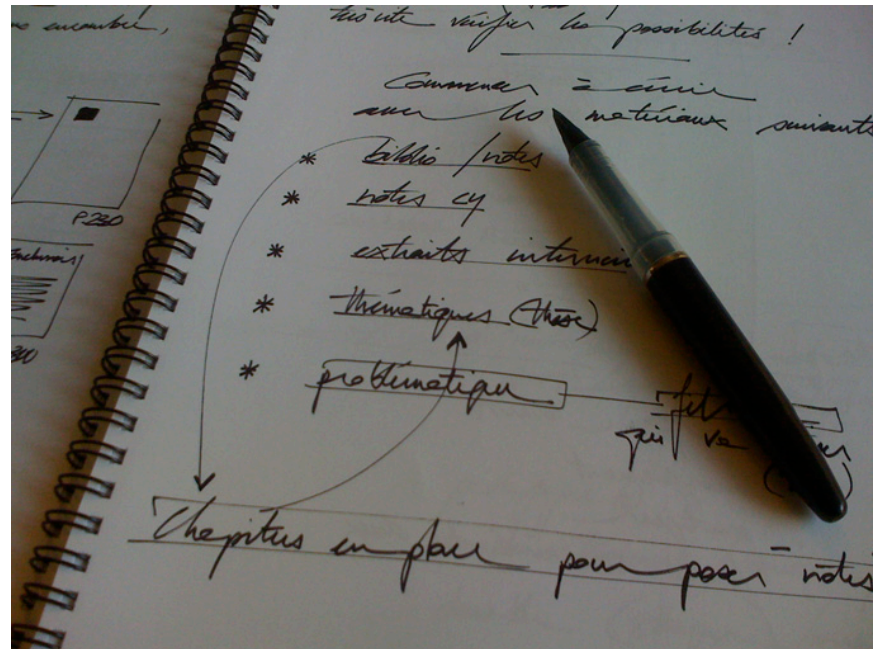 encombrer,
P.230
très vite vérifier les possibilités !
Commencer à écrire
avec les matériaux suivants
* biblio / notes
* notes cy
* extraits
* thématiques (thèse)
* problématique
qui va
Chapitres en place pour poser notes